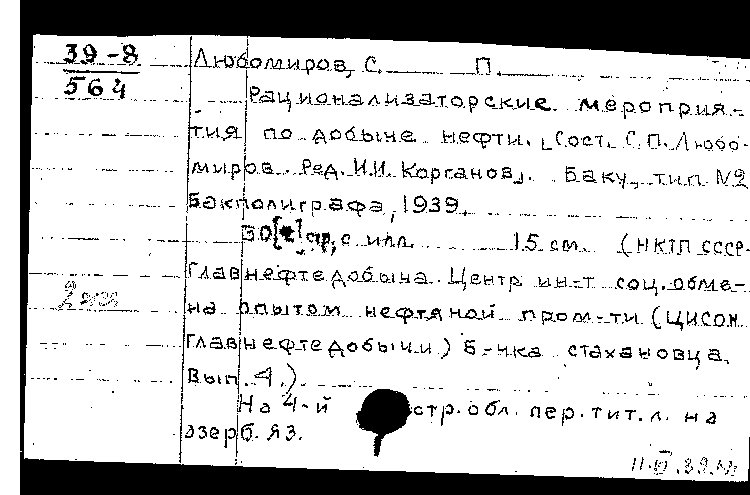 39-8
564
Любомиров, С. П.
Рационализаторские мероприя-
тия по добыче нефти. [Сост. С.П. Любо-
миров. Ред. И.И. Корганов]. Баку, тип №2
Бакполиграфа, 1939.
30 стр, с илл. 15 см. (НКТП СССР-
Главнефтедобыча. Центр ин-т соц. обме-
2 экз
на опытом нефтяной пром-ти (ЦИСОН
Главнефтедобычи) Б-чка стахановца.
Вып. 4.)
На 4-й стр. обл. пер. тит. л. на
азерб. яз.